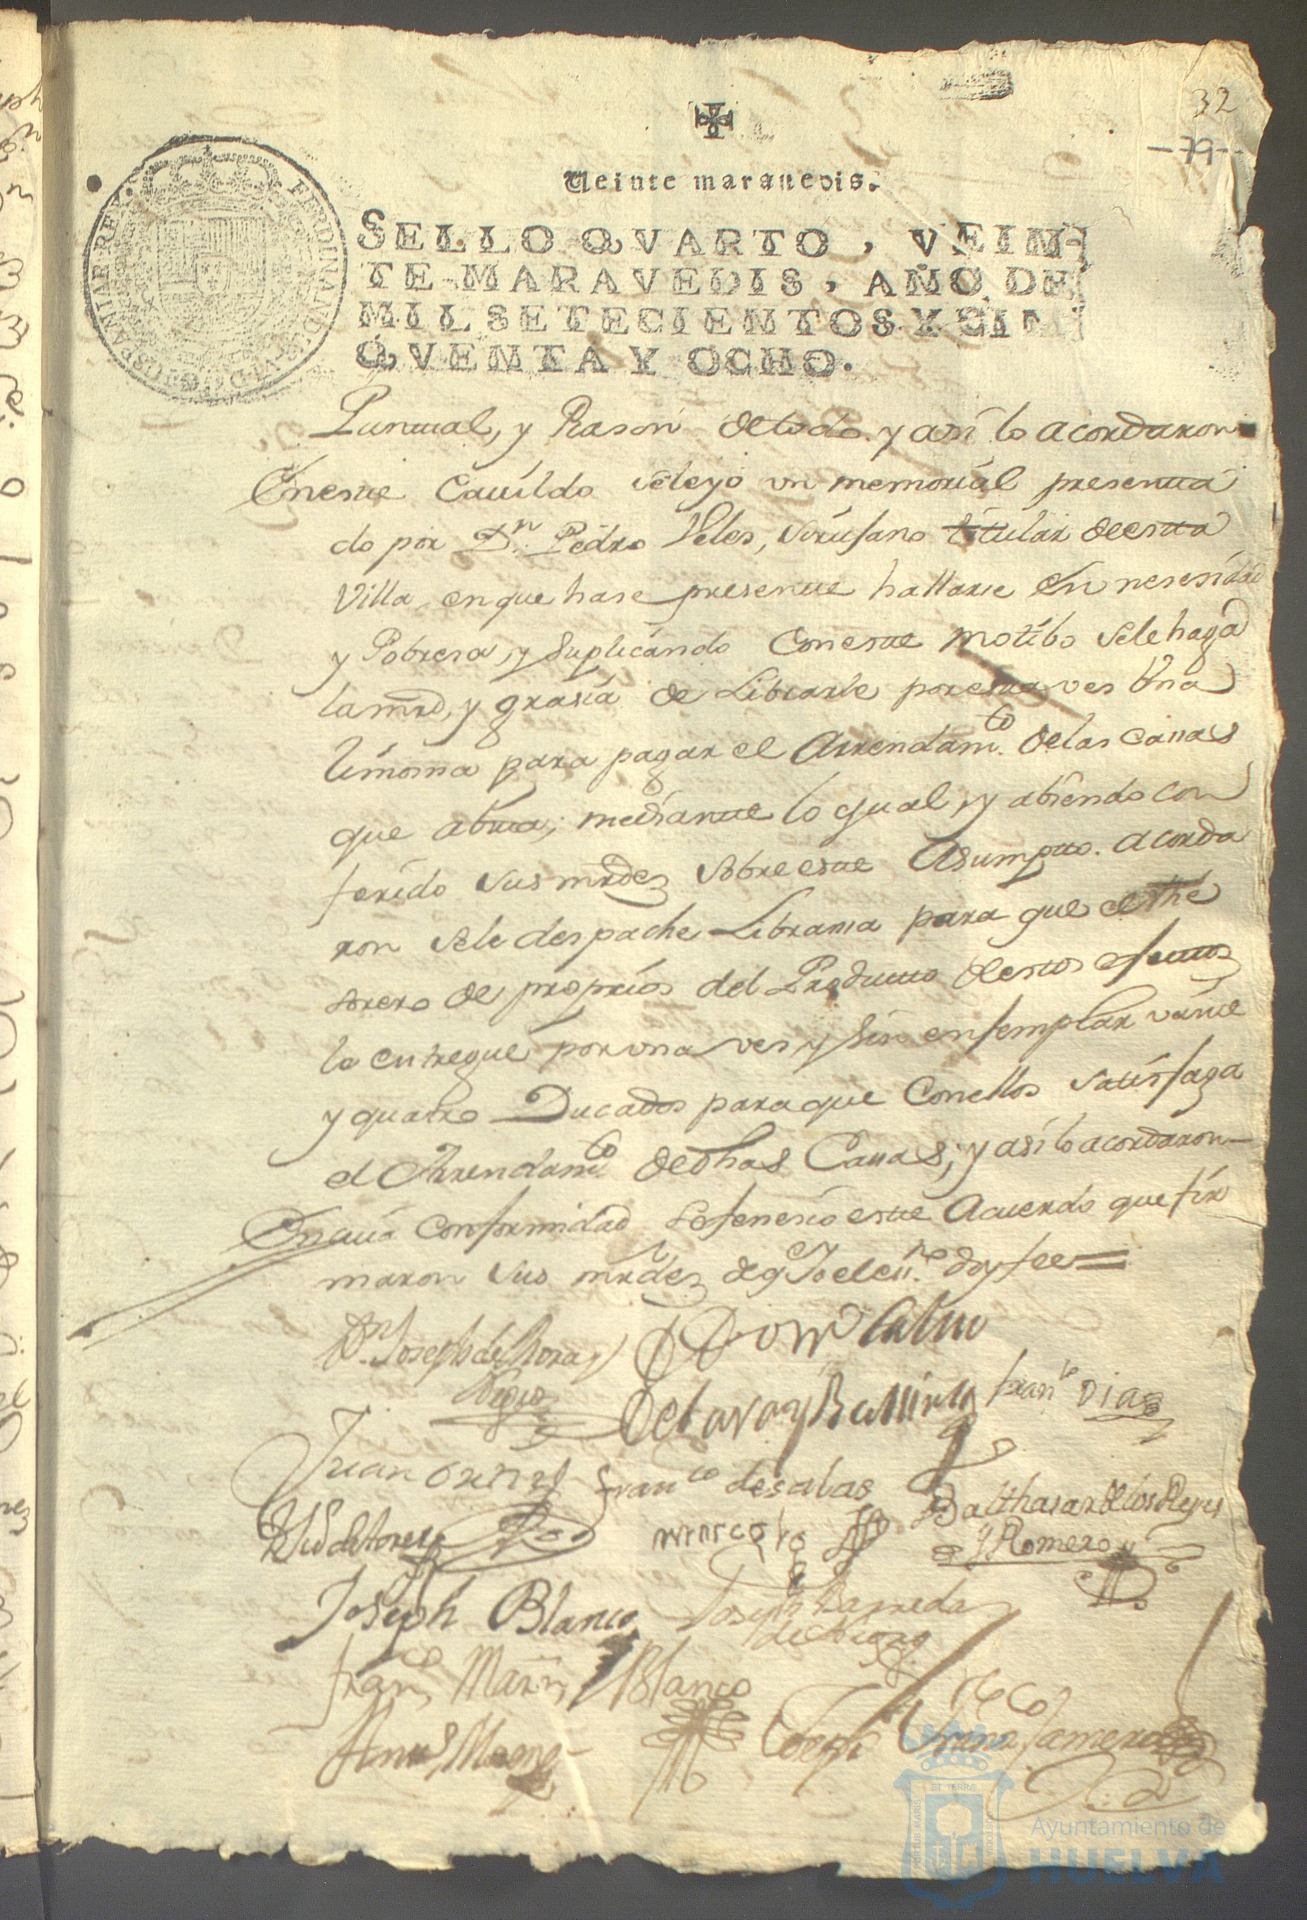 32
-79-
Veinte maravedis.
SELLO QVARTO, VEIN-
TE MARAVEDIS, AÑO DE
MIL SETECIENTOS Y CIN
QVENTA Y OCHO.
FERDINANDUS VI D G HISPANIAR REX
Puntual, y Rason detodo y asi lo acordaron
Eneste Cavildo seleyo un memorial presenta
do por Dn. Pedro Veles, Sirujano titular deesta
Villa enque hase presente hallarse en nesesidad
y Pobresa, y Suplicando Coneste motibo selehaga
lamrd, y grasia de Librarle poresta ves Una
limosna para pagar el Arrendamto. delas casas
que abita; mediante lo qual, y abiendo con
ferido sus mrdes sobre este Asumpto. acorda
ron sele despache Libransa para que el the
sorero de proprios del Producto destos efectos
le entregue por una ves, y sin enjemplar vainte
y quatro Ducados para que Conellos satisfaga
el Arrendamto. dedhas Casas; y asi lo acordaron
En cuia conformidad sefenesio este Acuerdo que fir
maron sus mrdes de q Yo elessno. doy fee
Dn. Joseph de Mora y
Negro
Franco Dias
Juan
Franco de salas
Balthasar de los Reyes
y Romero
Joseph Blanco
Joseph Barreda
Franco Marn. Blanco
Joseph
Ayuntamiento de
HUELVA